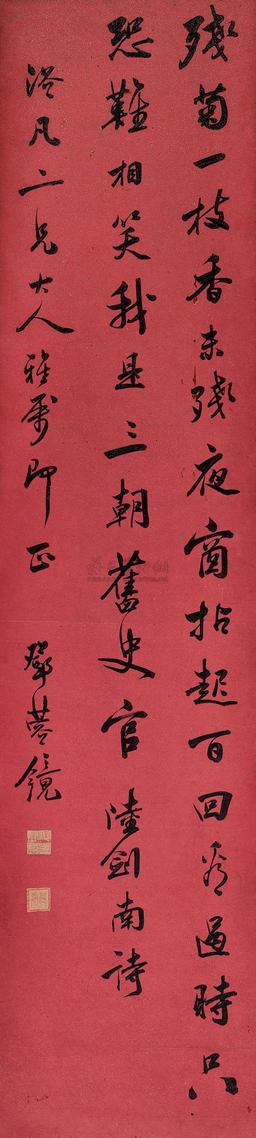 殘菊一枝香未殘夜窗拈起百回看過時只
恐難相笑我是三朝舊史官 陸劍南詩
浴凡二兄大人雅屬即正 鄧蓉鏡